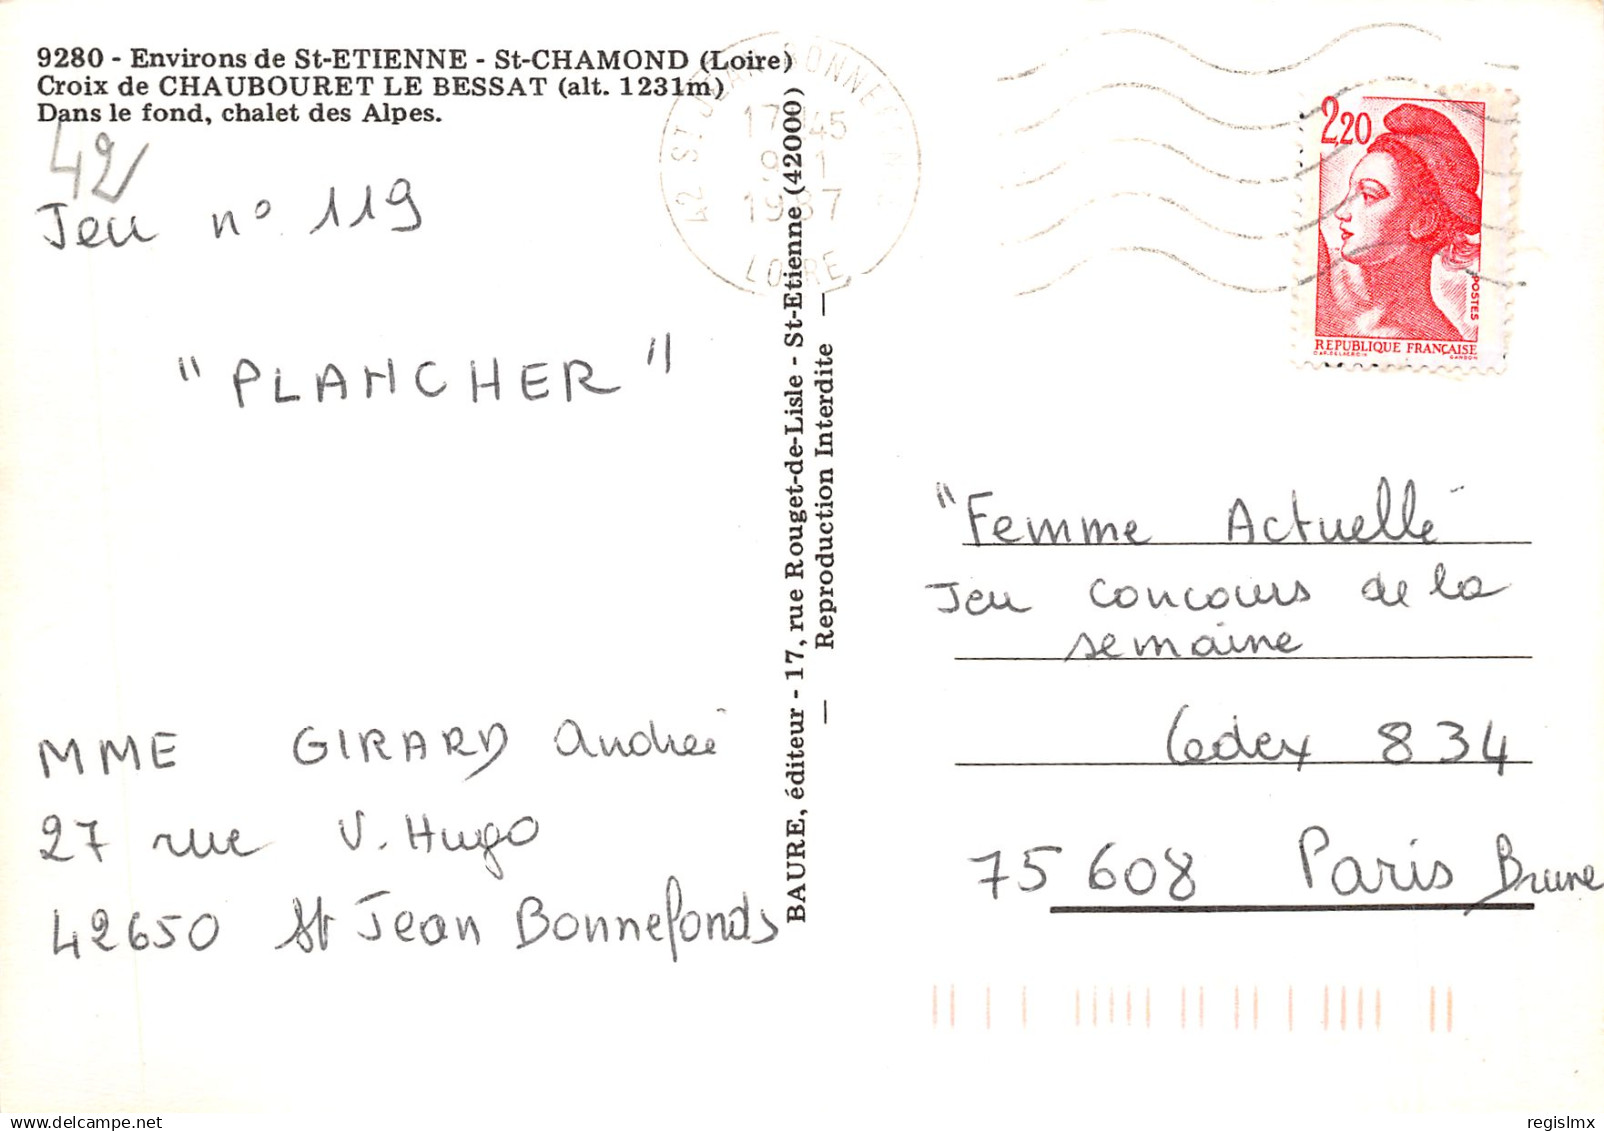 9280 - Environs de St-ETIENNE - St-CHAMOND (Loire)
Croix de CHAUBOURET LE BESSAT (alt. 1231m)
Dans le fond, chalet des Alpes.
42
Jeu n° 119
"PLANCHER"
MME GIRARD Andrée
27 rue V. Hugo
42650 St Jean Bonnefonds
BAURE, éditeur - 17, rue Rouget-de-Lisle - St-Etienne (42000)
— Reproduction Interdite —
42 ST JEAN BONNEFONDS
17 45
9 1
1987
LOIRE
2,20
POSTES
REPUBLIQUE FRANÇAISE
GANDON
"Femme Actuelle"
Jeu concours de la
semaine
Cedex 834
75608 Paris Brune
regislmx